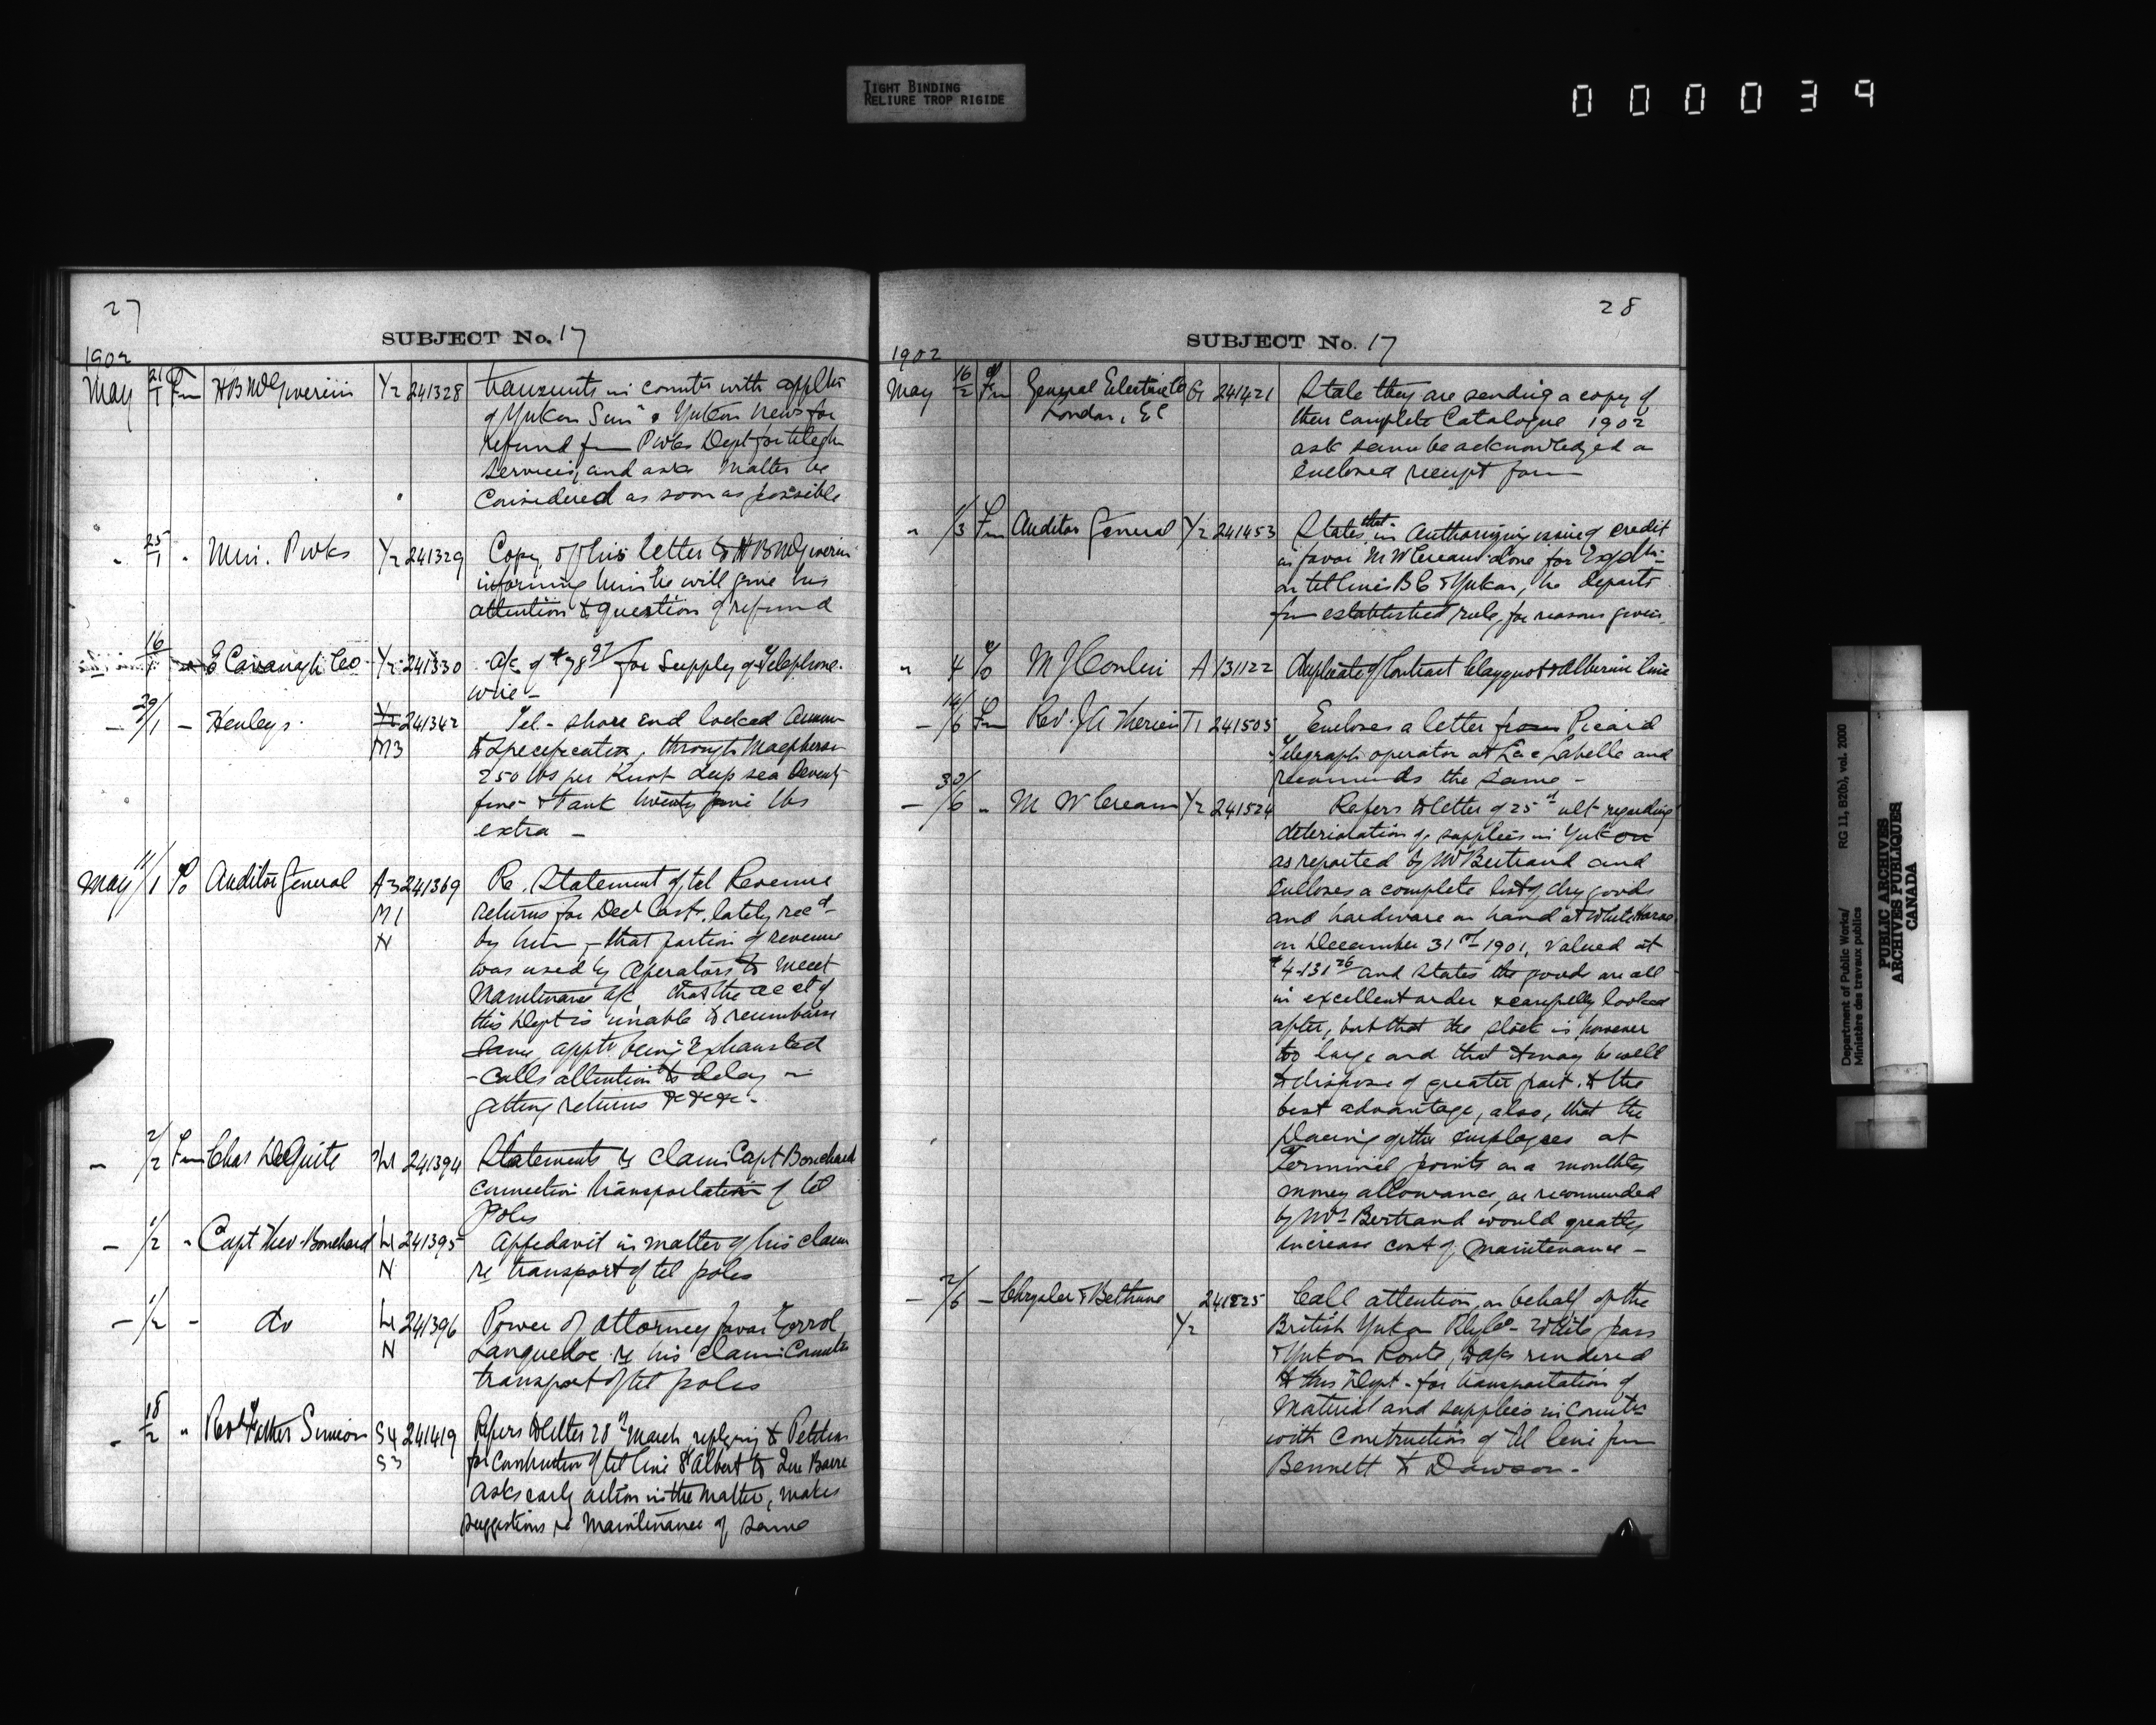 TIGHT BINDING
RELIURE TROP RIGIDE
000039
27
SUBJECT No. 17
1902
May 21/1 Fm H B McGiverin Y2 241328 transmits in connctn with applctn
of Yukon Sun & Yukon News for
refund fm Pwks Dept for telegh
services, and asks matter be
considered as soon as possible
" 25/1 " Min. Pwks Y2 241329 Copy of his letter to H B McGiverin
informing him he will give his
attention to question of refund
16/1 E Cavanagh Co Y2 241330 A/c of $78 97 for supply of telephone
wire -
- 29/1 - Henleys Y2 241342 Tel - shore end locked
M3 to specification, through Macpherson
250 lbs per knot deep sea seventy
five & tank twenty five lbs
extra -
May 11/1 To Auditor General A3 241369 Re. Statement of tel Revenue
M1 returns for Decr last, lately recd
N by him, - that portion of revenue
was used by operators to meet
maintenance a/c that the acct of
this Dept is unable to reimburse
same, apptn being exhausted
- Calls attention to delay in
getting returns &c &c -
- 2/2 Fm Chas DeGuise L1 241394 Statements re claim Capt Bouchard
connection transportation of tel
poles
- 1/2 " Capt Theo. Bouchard L1 241395 Affedavit in matter of his claim
N re transport of tel poles
- 1/2 - do L1 241396 Power of attorney favor Errol
N Languedoc re his claim connctn
transport of tel poles
- 18/2 " Revd Father Simeon S4 241419 Refers to letter 28th March replying to Petition
S3 for construction of tel line St Albert to Lac
Asks early action in the matter, makes
suggestions re maintenance of same
28
SUBJECT No. 17
1902
May 16/2 Fm General Electric Co G1 241421 State they are sending a copy of
London, E C their Complete Catalogue 1902
ask same be acknowledged on
enclosed receipt form
" 1/3 Fm Auditor General Y2 241453 States that in authorizing issue of credit
in favor M W Crean done for Expdtr
on tel lines B C & Yukon, he departs
fm established rule, for reasons given.
" 4 To M J Conlin A 131122 Duplicate of Contract Clayquot & Alberni line
- 14/6 Fm Rev. J A Therien T1 241505 Encloses a letter from Picard
Telegraph operator at Lac Labelle and
recommends the same -
- 30/6 " M W Crean Y2 241524 Refers to letter of 25th ult regarding
deterioration of supplies in Yukon
as reported by Mr Bertrand and
encloses a complete list of dry goods
and hardware on hand at White Horse
on December 31st 1901, valued at
$4131 26 and states the goods are all
in excellent order & carefully looked
after, but that the stock is however
too large and that it may be well
to dispose of greater part to the
best advantage, also, that the
placing of the employees at
Terminal points on a monthly
money allowance, as recommended
by Mr Bertrand would greatly
increase cost of maintenance -
- 2/6 - Chrysler & Bethune 241525 Call attention, on behalf of the
Y2 British Yukon Rly Co - White pass
& Yukon Route, to a/cs rendered
to this Dept - for transportation of
material and supplies in connctn
with construction of tel line from
Bennett to Dawson -
Department of Public Works/
Ministère des travaux publics
RG 11, B2(b), vol. 2000
PUBLIC ARCHIVES
ARCHIVES PUBLIQUES
CANADA